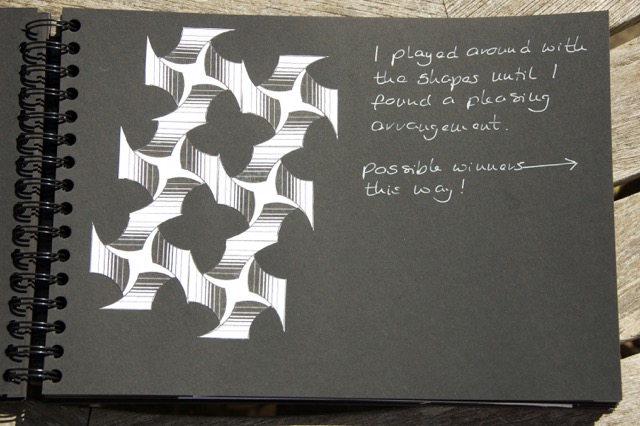 I played around with
the shapes until I
found a pleasing
arrangement.
possible winners
this way!